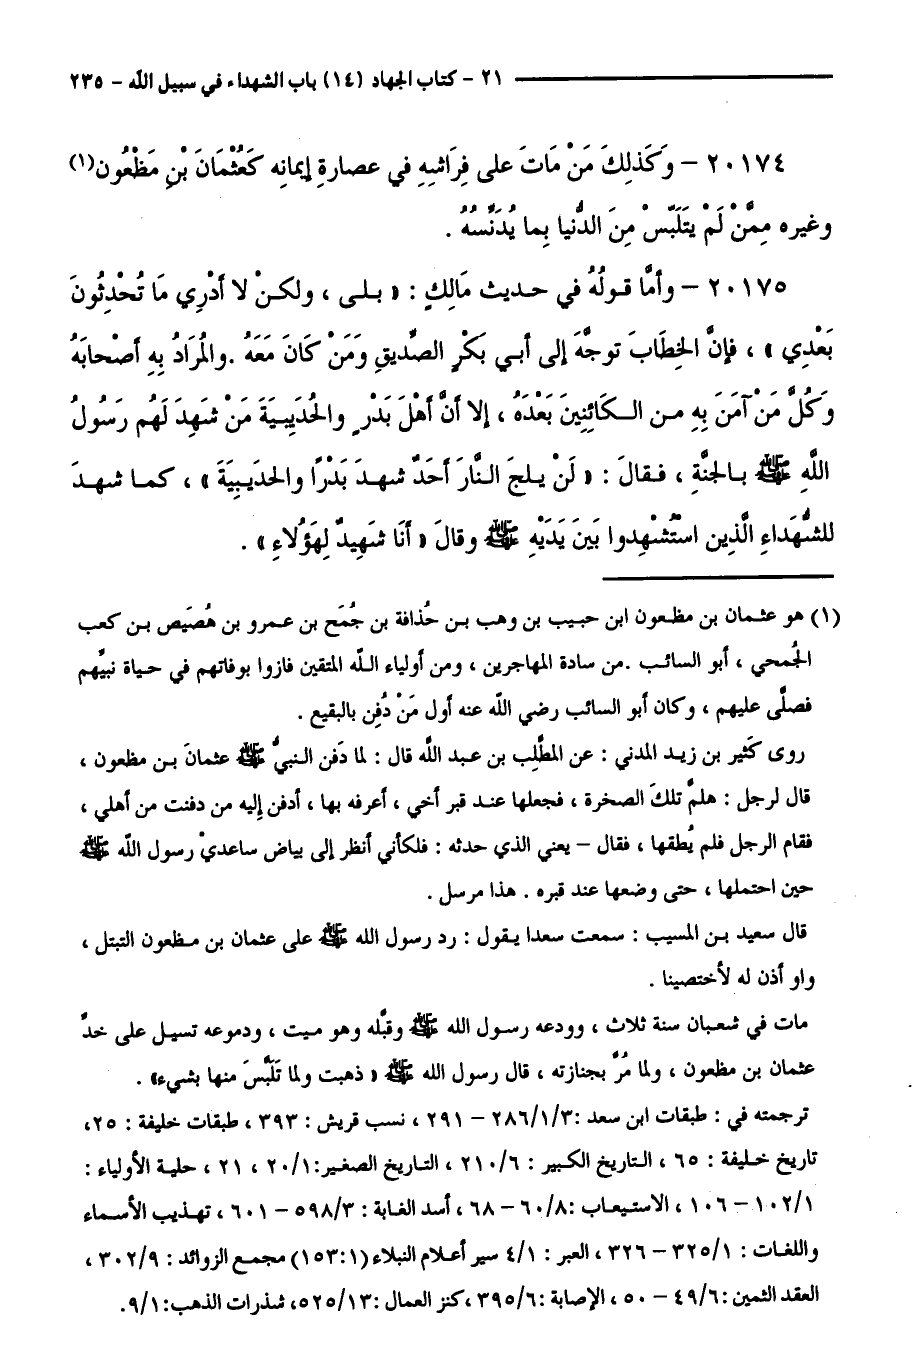 ٢١ - كتاب الجهاد (١٤) باب الشهداء في سبيل الله - ٢٣٥
٢٠١٧٤ - وَكَذلِكَ مَنْ مَاتَ على فِرَاشِهِ في عصارةِ إيمانِه كَعُثْمَانَ بْنِ مَظْعُون(١)
وغيره مِمَّنْ لَمْ يتَلَبّسْ مِنَ الدُّنيا بِما يُدَنّسُهُ .
٢٠١٧٥ - وأمَّا قولُهُ في حديث مَالِكٍ : « بلى ، ولكنْ لا أدْرِي مَا تُحْدِثُونَ
بَعْدِي » ، فإنَّ الخِطَابَ توجَّهَ إلى أبي بَكْرٍ الصِّديقِ وَمَنْ كَانَ مَعَهُ .والمُرَادُ بِهِ أصْحابَهُ
وَكُلَّ مَنْ آمَنَ بِهِ من الكَائِنِينَ بَعْدَهُ ، إلا أنَّ أهْلَ بَدْرٍ والحُدَيبِيَةَ مَنْ شَهِدَ لَهُم رَسُولُ
اللَّهِ ﷺ بالجنَّةِ ، فقالَ : « لَنْ يلجَ النَّارَ أحَدٌ شهدَ بَدْرًا والحدَيبِيَةَ » ، كما شهدَ
للشُّهَداءِ الَّذِين اسْتُشْهِدوا بَينَ يَدَيْهِ ﷺ وقالَ « أنَا شَهِيدٌ لِهَؤُلاءِ » .
(١) هو عثمان بن مظعون ابن حبيب بن وهب بن حُذافة بن جُمَح بن عمرو بن هُصَيص بن كعب
الجُمحي ، أبو السائب .من سادة المهاجرين ، ومن أولياء الله المتقين فازوا بوفاتهم في حياة نبيِّهم
فصلَّى عليهم ، وكان أبو السائب رضي الله عنه أول مَنْ دُفِن بالبقيع .
روى كَثير بن زيد المدني : عن المطَّلِب بن عبد الله قال : لما دَفن النبيُّ ﷺ عثمانَ بن مظعون ،
قال لرجل : هلمَّ تلكَ الصخرة ، فجعلها عند قبر أخي ، أعرفه بها ، أدفن إليه من دفنت من أهلي ،
فقام الرجل فلم يُطقها ، فقال - يعني الذي حدثه : فلكأني أنظر إلى بياض ساعديْ رسول الله ﷺ
حين احتملها ، حتى وضعها عند قبره . هذا مرسل .
قال سعيد بن المسيب : سمعت سعدا يقول : رد رسول الله ﷺ على عثمان بن مظعون التبتل ،
واو أذن له لأختصينا .
مات في شعبان سنة ثلاث ، وودعه رسول الله ﷺ وقبَّله وهو ميت ، ودموعه تسيل على خدَّ
عثمان بن مظعون ، ولما مُرَّ بجنازته ، قال رسول الله ﷺ « ذهبت ولما تَلَبَّسَ منها بشيء» .
ترجمته في : طبقات ابن سعد :٢٨٦/١/٣ - ٢٩١ ، نسب قريش : ٣٩٣ ، طبقات خليفة : ٢٥،
تاريخ خليفة : ٦٥ ، التاريخ الكبير : ٢١٠/٦ ، التاريخ الصغير:٢٠/١ ، ٢١ ، حلية الأولياء :
١٠٢/١ - ١٠٦ ، الاستيعاب :٦٠/٨ - ٦٨ ، أسد الغابة : ٥٩٨/٣ - ٦٠١ ، تهذيب الأسماء
واللغات : ٣٢٥/١ - ٣٢٦ ، العبر : ٤/١ سير أعلام النبلاء (١٥٣:١) مجمع الزوائد : ٣٠٢/٩ ،
العقد الثمين :٤٩/٦ - ٥٠ ، الإصابة :٣٩٥/٦ ،كنز العمال :٥٢٥/١٣، شذرات الذهب:٩/١.